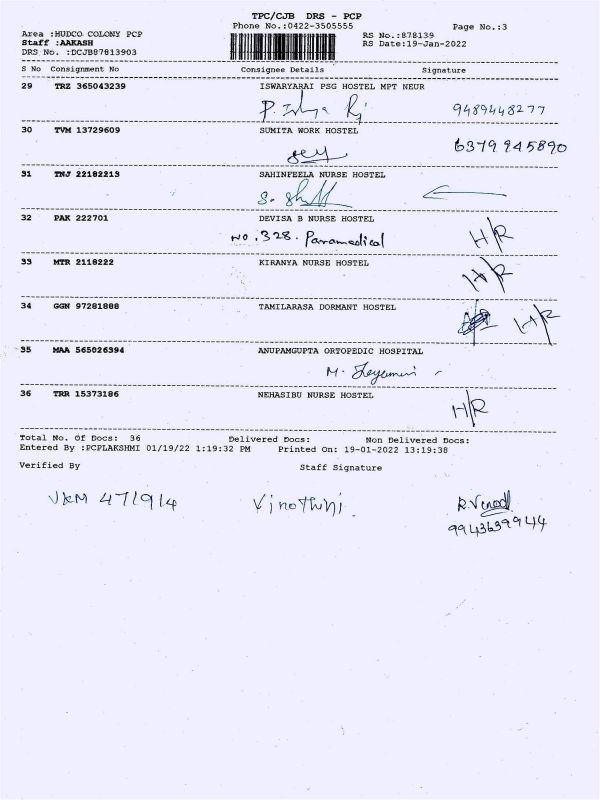 TPC/CJB DRS - PCP
Phone No.:0422-3505555
Page No.:3
Area :HUDCO COLONY PCP
RS No.:878139
Staff :AAKASH
RS Date:19-Jan-2022
DRS No. :DCJB87813903
S No Consignment No Consignee Details Signature
29 TRZ 365043239 ISWARYARAI PSG HOSTEL MPT NEUR
9489448277
30 TVM 13729609 SUMITA WORK HOSTEL
6379945890
31 TNJ 22182213 SAHINFEELA NURSE HOSTEL
32 PAK 222701 DEVISA B NURSE HOSTEL
NO. 328. Paramedical H/R
33 MTR 2118222 KIRANYA NURSE HOSTEL
H/R
34 GGN 97281888 TAMILARASA DORMANT HOSTEL
H/R
35 MAA 565026394 ANUPAMGUPTA ORTOPEDIC HOSPITAL
36 TRR 15373186 NEHASIBU NURSE HOSTEL
H/R
Total No. Of Docs: 36 Delivered Docs: Non Delivered Docs:
Entered By :PCPLAKSHMI 01/19/22 1:19:32 PM Printed On: 19-01-2022 13:19:38
Verified By Staff Signature
Vinothini R.Vinod
9943639944